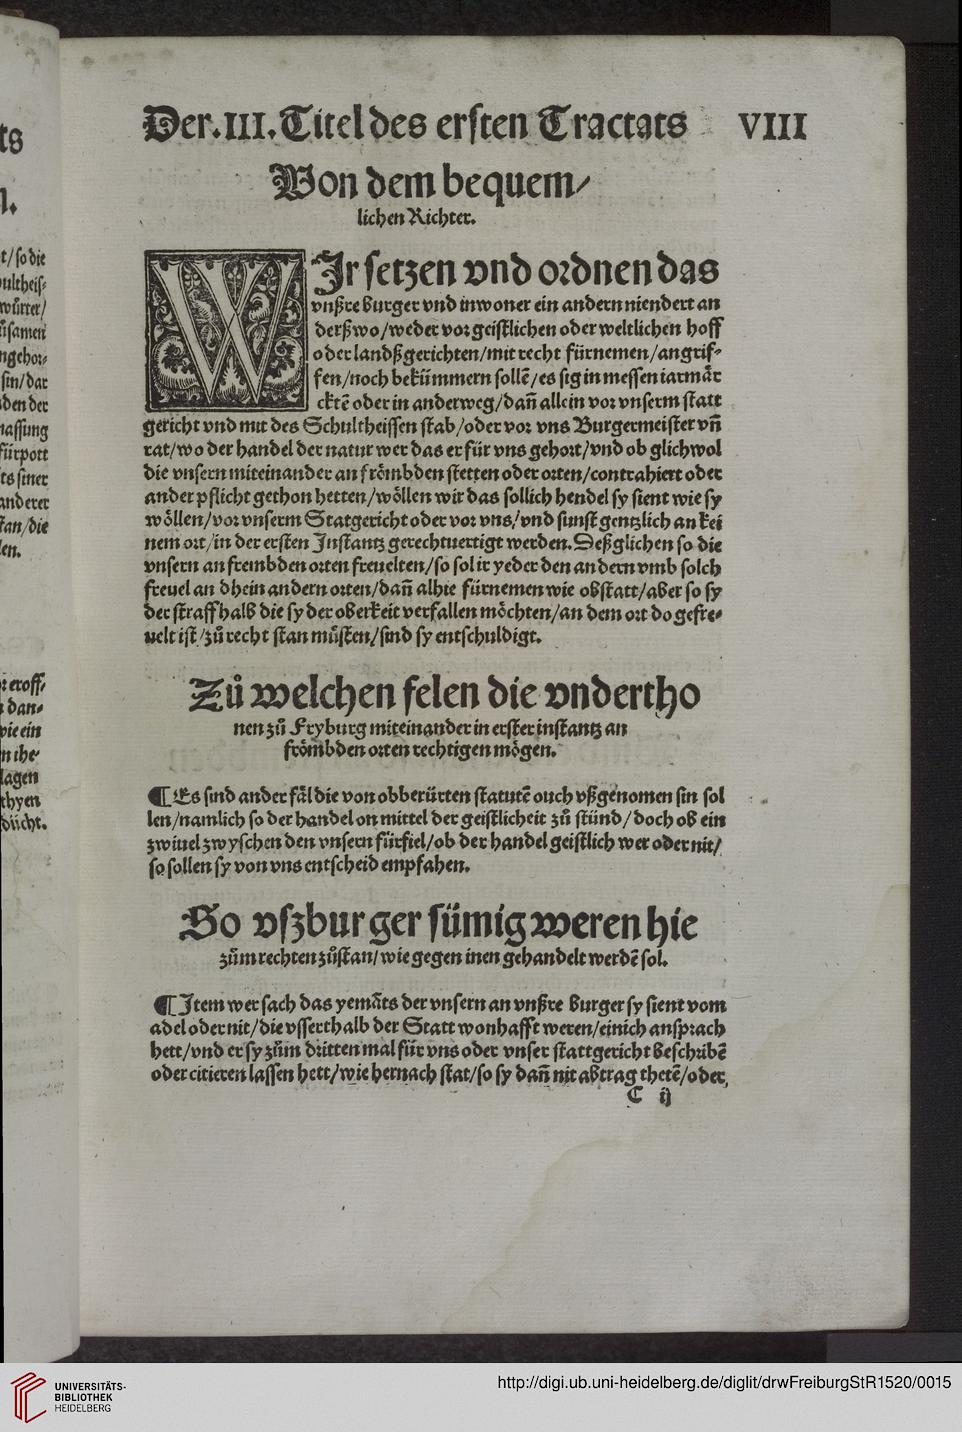 ts
n.
t/ so die
ultheis⸗
würter/
üsamen
ngehor⸗
sin/dar
den der
nassung
fürpott
ts siner
anderer
stan/die
len.
eroff⸗
dan⸗
wie ein
n ihe⸗
lagen
thyen
dücht.
Der.III.Titel des ersten Tractats VIII
Von dem bequem/
lichen Richter.
WIr setzen vnd ordnen das
vnßre Burger vnd inwoner ein andern niendert an
derßwo/weder vor geistlichen oder weltlichen hoff
oder landßgerichten/mit recht fürnemen/angrif⸗
fen/noch bekümmern sollē/es sig in messen iarmär
cktē oder in anderweg/dañ allein vor vnserm statt
gericht vnd mit des Schultheissen stab/oder vor vns Burgermeister vñ
rat/wo der handel der natur wer das er für vns gehort/vnd ob glichwol
die vnsern miteinander an frömbden stetten oder orten/contrahiert oder
ander pflicht gethon hetten/wöllen wir das sollich hendel sy sient wie sy
wöllen/vor vnserm Statgericht oder vor vns/vnd sunst gentzlich an kei
nem ort/in der ersten Instantz gerechtuertigt werden. Deßglichen so die
vnsern an frembden orten freuelten/so sol ir yeder den andern vmb solch
freuel an dhein andern orten/dañ alhie fürnemen wie obstatt/aber so sy
der straffhalb die sy der oberkeit verfallen möchten/an dem ort do gefre⸗
uelt ist/zů recht stan müsten/sind sy entschuldigt.
Zů welchen felen die vndertho
nen zů Fryburg miteinander in erster instantz an
frömbden orten rechtigen mögen.
¶ Es sind ander fäl die von obberürten statutē ouch vßgenomen sin sol
len/namlich so der handel on mittel der geistlicheit zů stünd/doch ob ein
zwiuel zwyschen den vnsern fürfiel/ob der handel geistlich wer oder nit/
so sollen sy von vns entscheid empfahen.
So vszburger sümig weren hie
zům rechten zůstan/wie gegen inen gehandelt werdē sol.
¶ Item wer sach das yemāts der vnsern an vnßre Burger sy sient vom
adel oder nit/die vsserthalb der Statt wonhafft weren/einich ansprach
hett/vnd er sy zům dritten mal für vns oder vnser stattgericht beschribē
oder citieren lassen hett/wie hernach stat/so sy dañ nit abtrag thetē/oder
C ij
UNIVERSITÄTS-
BIBLIOTHEK
HEIDELBERG
http://digi.ub.uni-heidelberg.de/diglit/drwFreiburgStR1520/0015